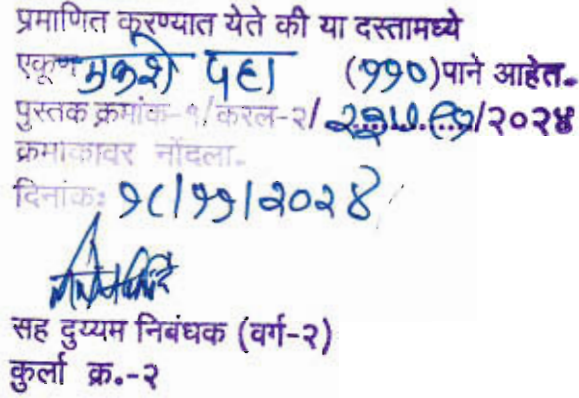 प्रमाणित करण्यात येते की या दस्तामध्ये
एकूण एकशे दहा (११०) पाने आहेत.
पुस्तक क्रमांक-१/करल-२/ /२०२४
क्रमांकावर नोंदला.
दिनांक: १८/११/२०२४
सह दुय्यम निबंधक (वर्ग-२)
कुर्ला क्र.-२